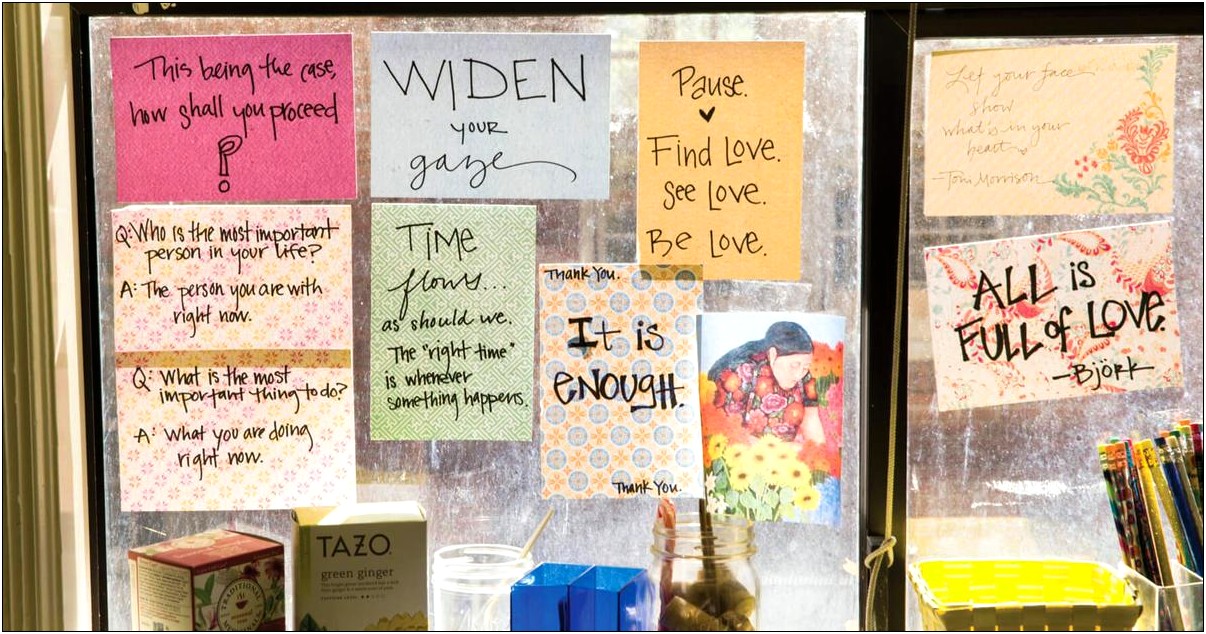 This being the case,
how shall you proceed
?
WIDEN
your
gaze
Pause.
Find Love.
See Love.
Be Love.
Let your face
show
what's in your
heart
-Toni Morrison
Q: Who is the most important
person in your life?
A: The person you are with
right now.
Q: What is the most
important thing to do?
A: What you are doing
right now.
TIME
flows...
as should we.
The "right time"
is whenever
something happens.
Thank You.
It is
ENOUGH.
Thank You.
ALL is
FULL of LOVE.
-Björk
TRADITIONAL
MEDICINALS
TAZO
green ginger